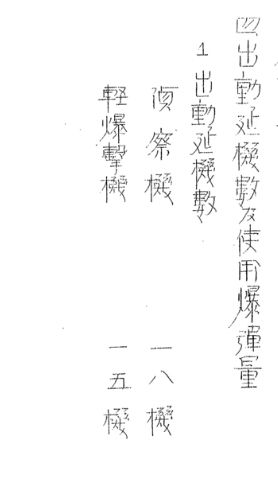 四出動延機数及使用爆弾量
1出動延機数
偵察機 一八機
軽爆撃機 一五機